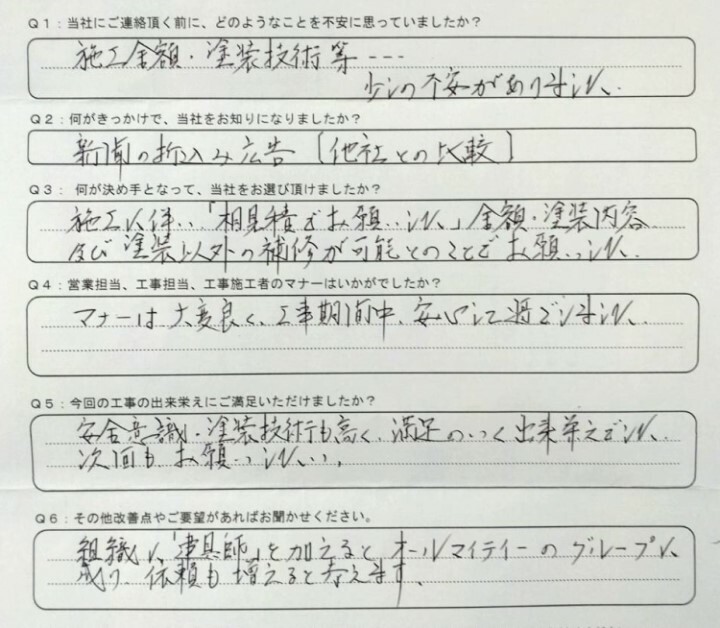 Q1：当社にご連絡頂く前に、どのようなことを不安に思っていましたか？
施工金額・塗装技術等---
少しの不安がありました。
Q2：何がきっかけで、当社をお知りになりましたか？
新聞の折込み広告［他社との比較］
Q3： 何が決め手となって、当社をお選び頂けましたか？
施工に伴い、「相見積でお願いした」金額・塗装内容
及び塗装以外の補修が可能とのことでお願いした。
Q4：営業担当、工事担当、工事施工者のマナーはいかがでしたか？
マナーは大変良く、工事期間中、安心して過ごしました。
Q5：今回の工事の出来栄えにご満足いただけましたか？
安全意識・塗装技術も高く、満足のいく出来栄えでした。
次回もお願いしたい。
Q6：その他改善点やご要望があればお聞かせください。
組織に「建具師」を加えると、オールマイティーのグループに
成り、依頼も増えると考えます。